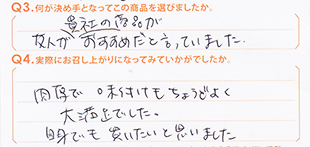 Q3.何が決め手となってこの商品を選びましたか。
貴社の商品が
友人がおすすめだと言っていました.
Q4.実際にお召し上がりになってみていかがでしたか。
肉厚で 味付けもちょうどよく
大満足でした。
自身でも買いたいと思いました